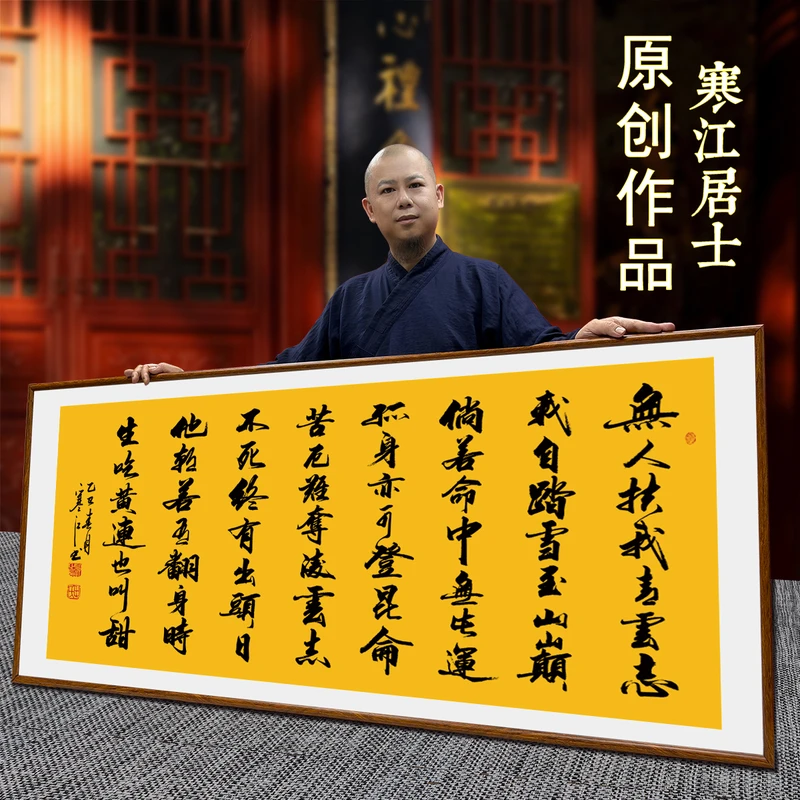 寒江居士
原创作品
心禮
無人扶我青雲志
我自踏雪至山巔
倘若命中無此運
孤身亦可登昆侖
苦厄難奪凌雲志
不死終有出頭日
他朝若吾翻身時
生吃黃連也叫甜
乙巳春月
寒江书